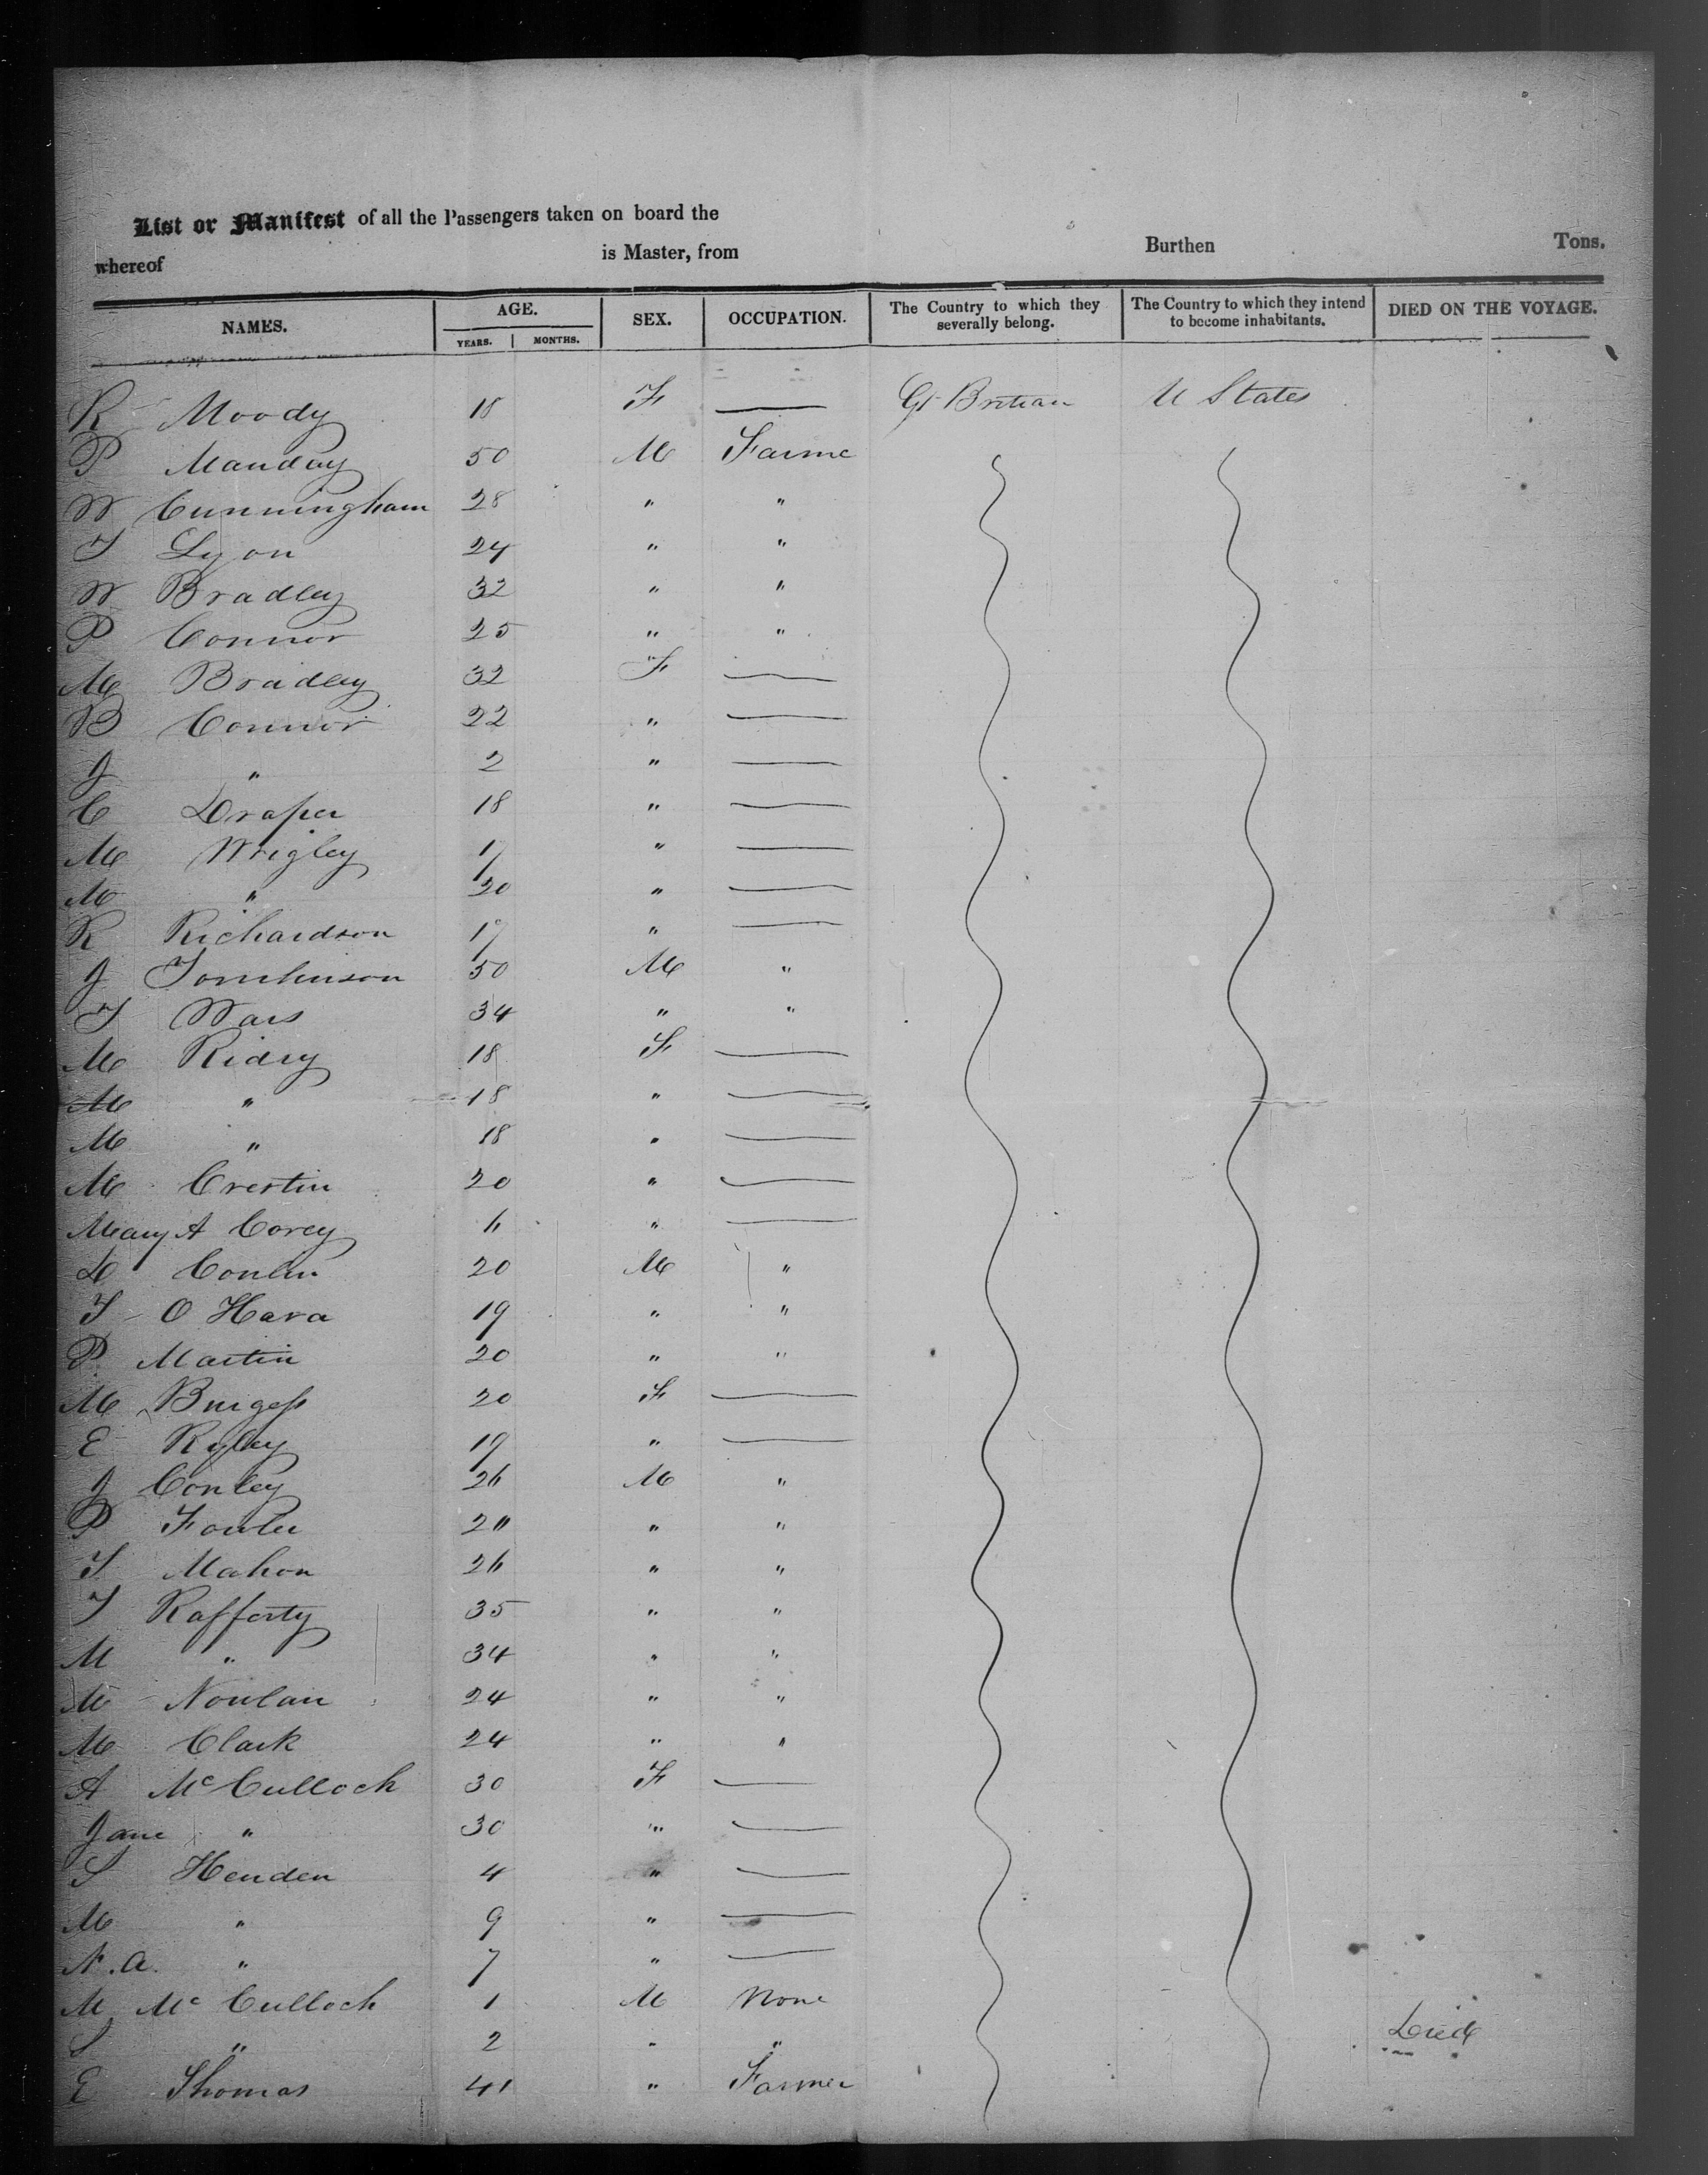 List or Manifest of all the Passengers taken on board the
whereof is Master, from Burthen Tons.
NAMES. AGE. YEARS. MONTHS. SEX. OCCUPATION. The Country to which they severally belong. The Country to which they intend to become inhabitants. DIED ON THE VOYAGE.
R Moody 18 F — Gt Britian U States
P Manday 50 M Farme
W Cunningham 28 " "
T Lyon 24 " "
W Bradley 32 " "
P Connor 25 " "
M Bradley 32 F —
B Connor 22 " —
J " 2 " —
C Draper 18 " —
M Wrigley 17 " —
M " 20 " —
R Richardson 17 " —
J Tomlinson 50 M "
T Wars 34 " "
M Ridry 18 F —
M " 18 " —
M " 18 " —
M Crestin 20 " —
Mary A Corey 6 " —
D Conlin 20 M "
T O Hara 19 " "
P Martin 20 " "
M Burgess 20 F —
E Ryley 19 " —
J Conley 26 M "
P Fowler 20 " "
T Mahon 26 " "
T Rafferty 35 " "
M " 34 " "
M Noulan 24 " "
M Clark 24 " "
A McCulloch 30 F —
Jane " 30 " —
S Henden 4 " —
M " 9 " —
N.a. " 7 " —
M McCulloch 1 M None
S " 2 " " Died
E Thomas 41 " Farmer